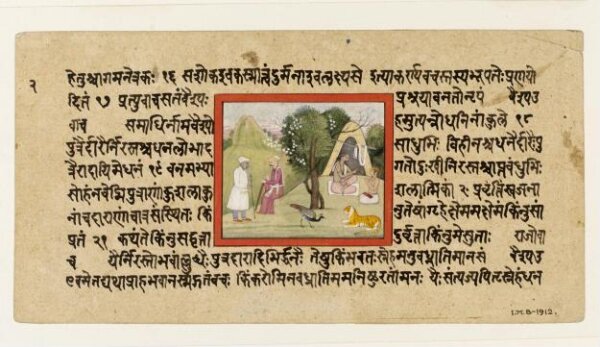 २
हेतुश्चागमनेत्रकः १६ सशोकइवकस्मात्त्वंदुर्मनाइवलक्ष्यसे इत्याकर्ण्यवचस्तस्यभूपतेःप्रणयो
दितं १७ प्रत्युवाचसतंवैश्यः प्रश्रयावनतोनृपं वैश्यउ
वाच समाधिर्नामवैश्यो हमुत्पन्नोधनिनांकुले १८
पुत्रैर्दारैर्निरस्तश्चधनलोभाद साधुभिः विहीनश्चधनैर्दारैःपु
त्रैरादायमेधनं १९ वनमभ्या गतोदुःखीनिरस्तश्चाप्तबंधुभिः
सोहंनवेद्मिपुत्राणांकुशलाकु शलात्मिकां २० प्रवृत्तिंस्वजना
नांचदाराणांचात्रसंस्थितः किं नुतेषांगृहेक्षेममक्षेमंकिंनुसां
प्रतं २१ कथंतेकिंनुसद्वृत्ता दुर्वृत्ताकिंनुमेसुताः राजोवा
च यैर्निरस्तोभवांल्लुब्धैः पुत्रदारादिभिर्द्धनैः तेषुकिंभवतःस्नेहमनुबध्नातिमानसं वैश्यउ
एवमेतद्यथाप्राहभवानस्मद्गतंवचः किंकरोमिनबध्नातिममनिष्ठुरतांमनः यैःसंत्यज्यपितृस्नेहंधन
I.M. 8-1912.